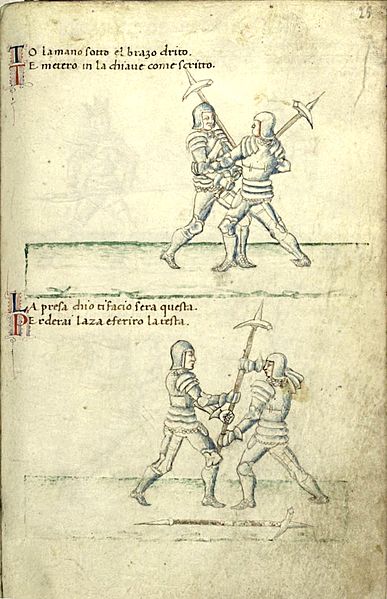 TO lamano sotto el brazo drito.
TE metero in la chiaue come scritto.
LA presa chio ti facio sera questa.
PErderai laza e feriro la testa.